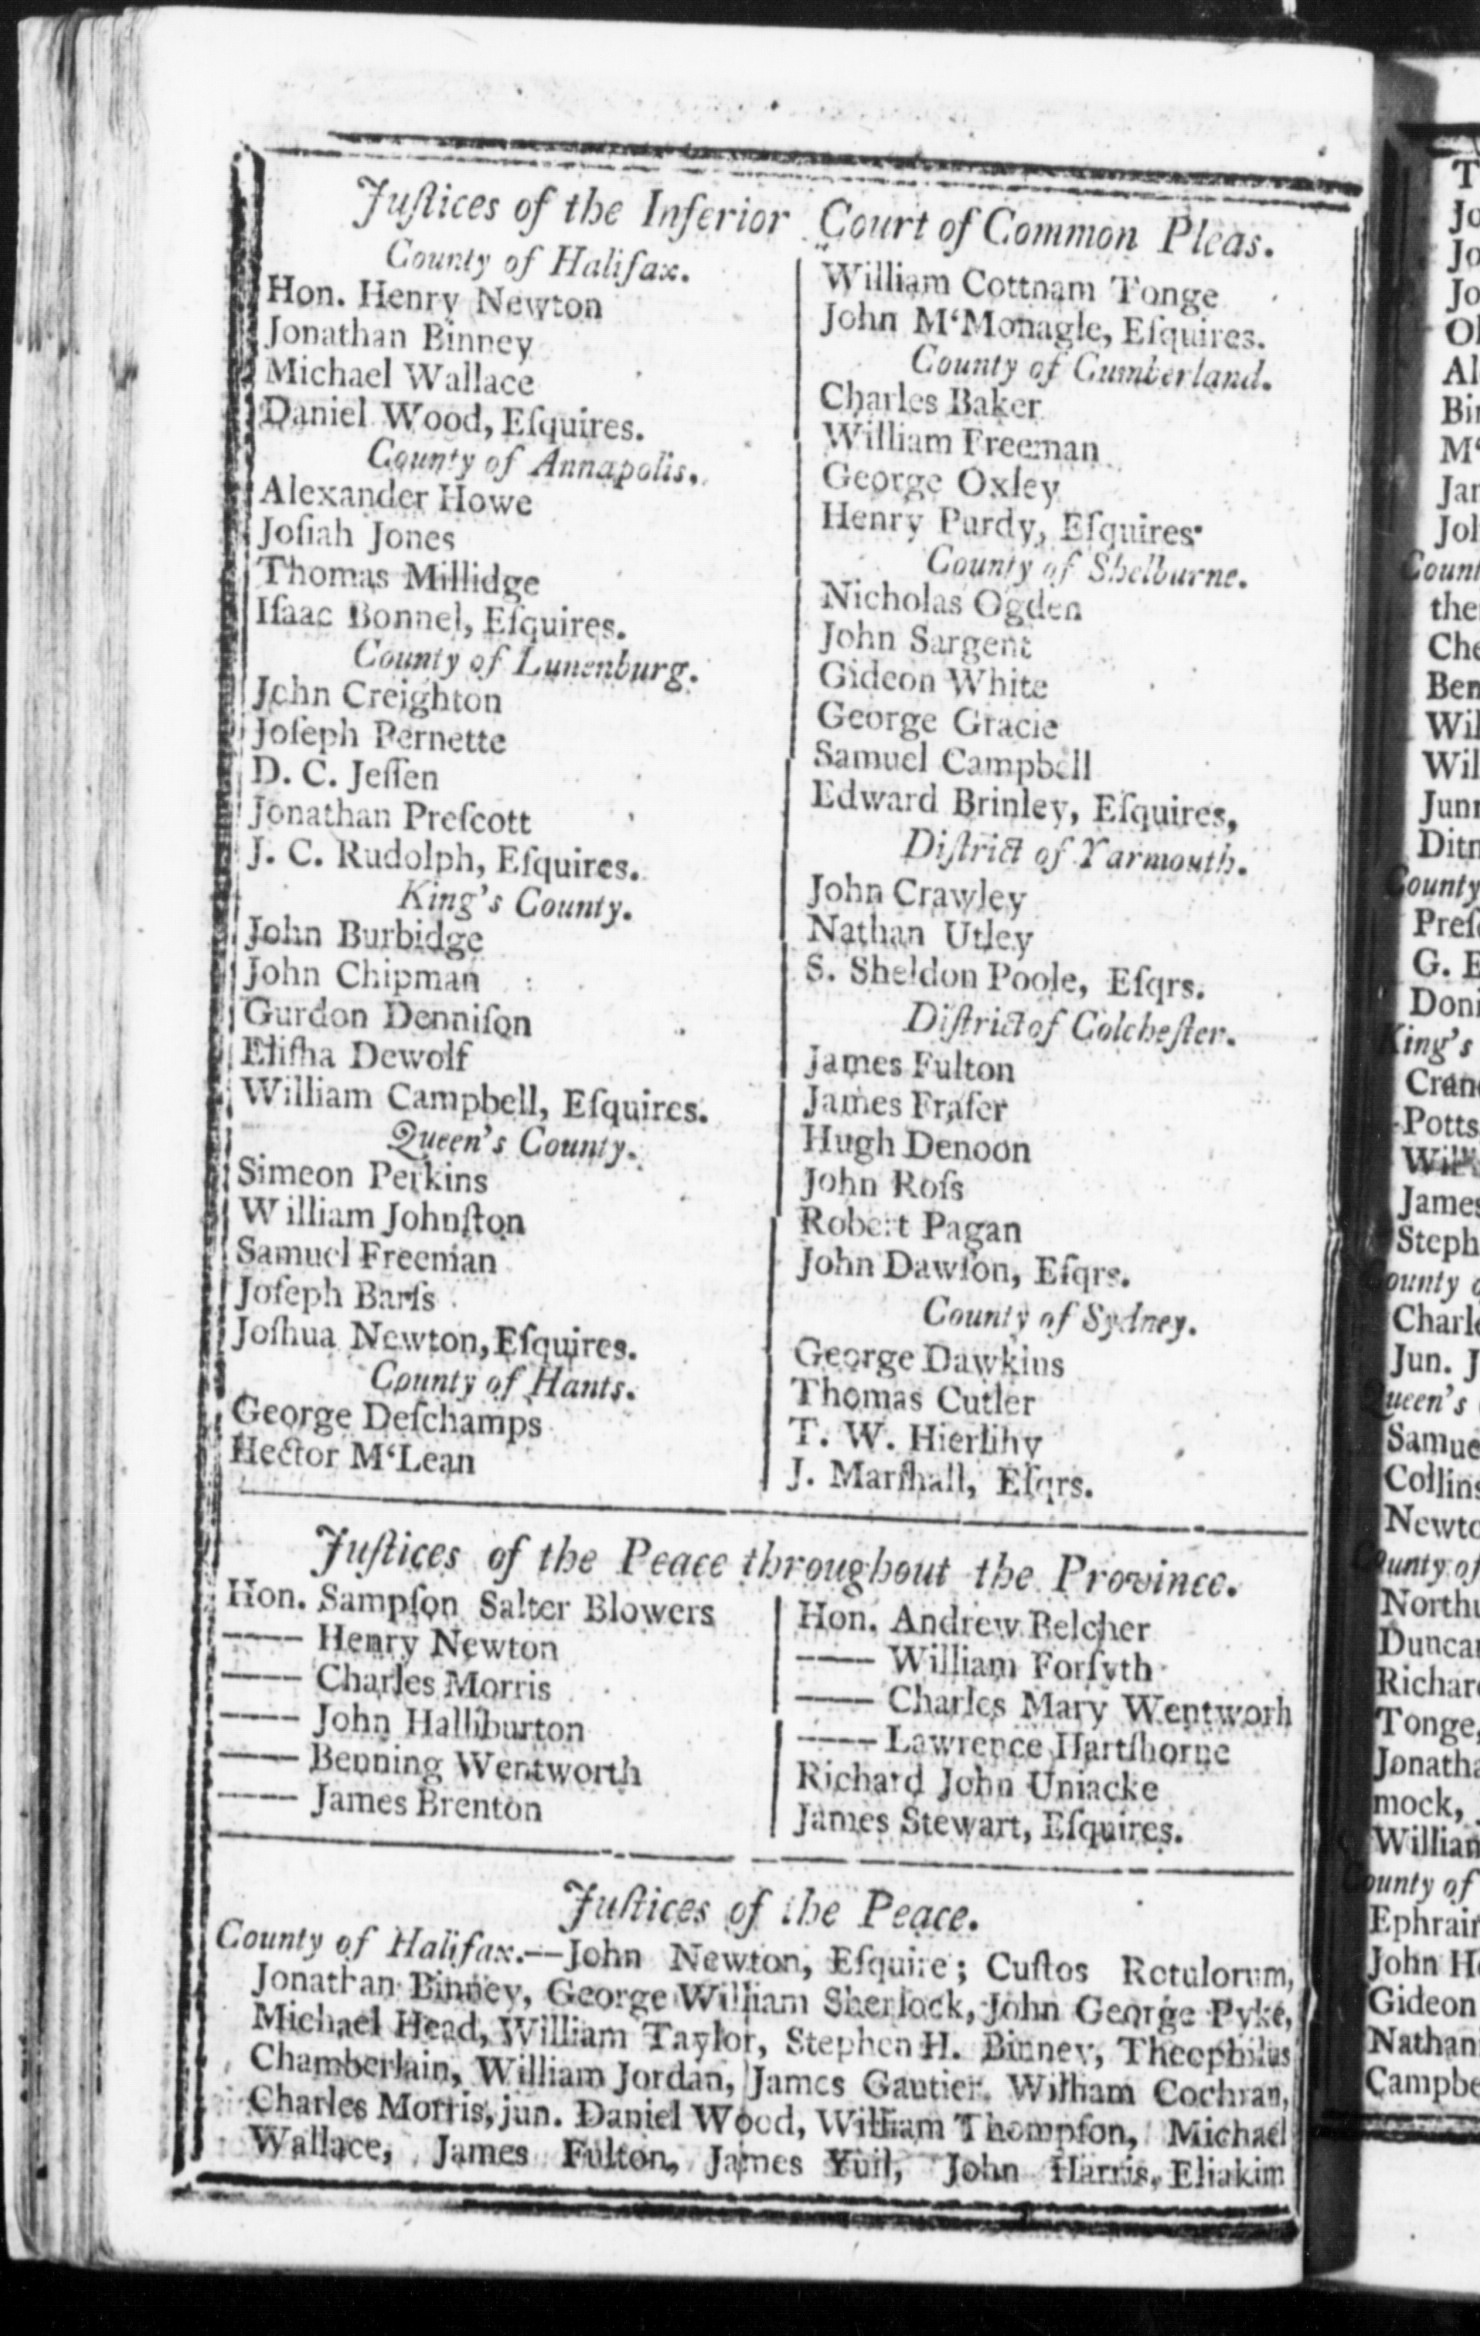 Juſtices of the Inferior Court of Common Pleas.
County of Halifax.
Hon. Henry Newton
Jonathan Binney
Michael Wallace
Daniel Wood, Eſquires.
County of Annapolis.
Alexander Howe
Joſiah Jones
Thomas Millidge
Iſaac Bonnel, Eſquires.
County of Lunenburg.
John Creighton
Joſeph Pernette
D. C. Jeſſen
Jonathan Preſcott
J. C. Rudolph, Eſquires.
King's County.
John Burbidge
John Chipman
Gurdon Denniſon
Eliſha Dewolf
William Campbell, Eſquires.
Queen's County.
Simeon Perkins
William Johnſton
Samuel Freeman
Joſeph Barſs
Joſhua Newton, Eſquires.
County of Hants.
George Deſchamps
Hector M‘Lean
William Cottnam Tonge
John M‘Monagle, Eſquires.
County of Cumberland.
Charles Baker
William Freeman
George Oxley
Henry Purdy, Eſquires.
County of Shelburne.
Nicholas Ogden
John Sargent
Gideon White
George Gracie
Samuel Campbell
Edward Brinley, Eſquires,
Diſtrict of Yarmouth.
John Crawley
Nathan Utley
S. Sheldon Poole, Eſqrs.
Diſtrict of Colcheſter.
James Fulton
James Fraſer
Hugh Denoon
John Roſs
Robert Pagan
John Dawſon, Eſqrs.
County of Sydney.
George Dawkins
Thomas Cutler
T. W. Hierlihy
J. Marſhall, Eſqrs.
Juſtices of the Peace throughout the Province.
Hon. Sampſon Salter Blowers
—— Henry Newton
—— Charles Morris
—— John Halliburton
—— Benning Wentworth
—— James Brenton
Hon. Andrew Belcher
—— William Forſyth
—— Charles Mary Wentworh
—— Lawrence Hartſhorne
Richard John Uniacke
James Stewart, Eſquires.
Juſtices of the Peace.
County of Halifax.—John Newton, Eſquire; Cuſtos Rotulorum,
Jonathan Binney, George William Sherlock, John George Pyke,
Michael Head, William Taylor, Stephen H. Binney, Theophilus
Chamberlain, William Jordan, James Gautier, William Cochran,
Charles Morris, jun. Daniel Wood, William Thompſon, Michael
Wallace, James Fulton, James Yuil, John Harris, Eliakim